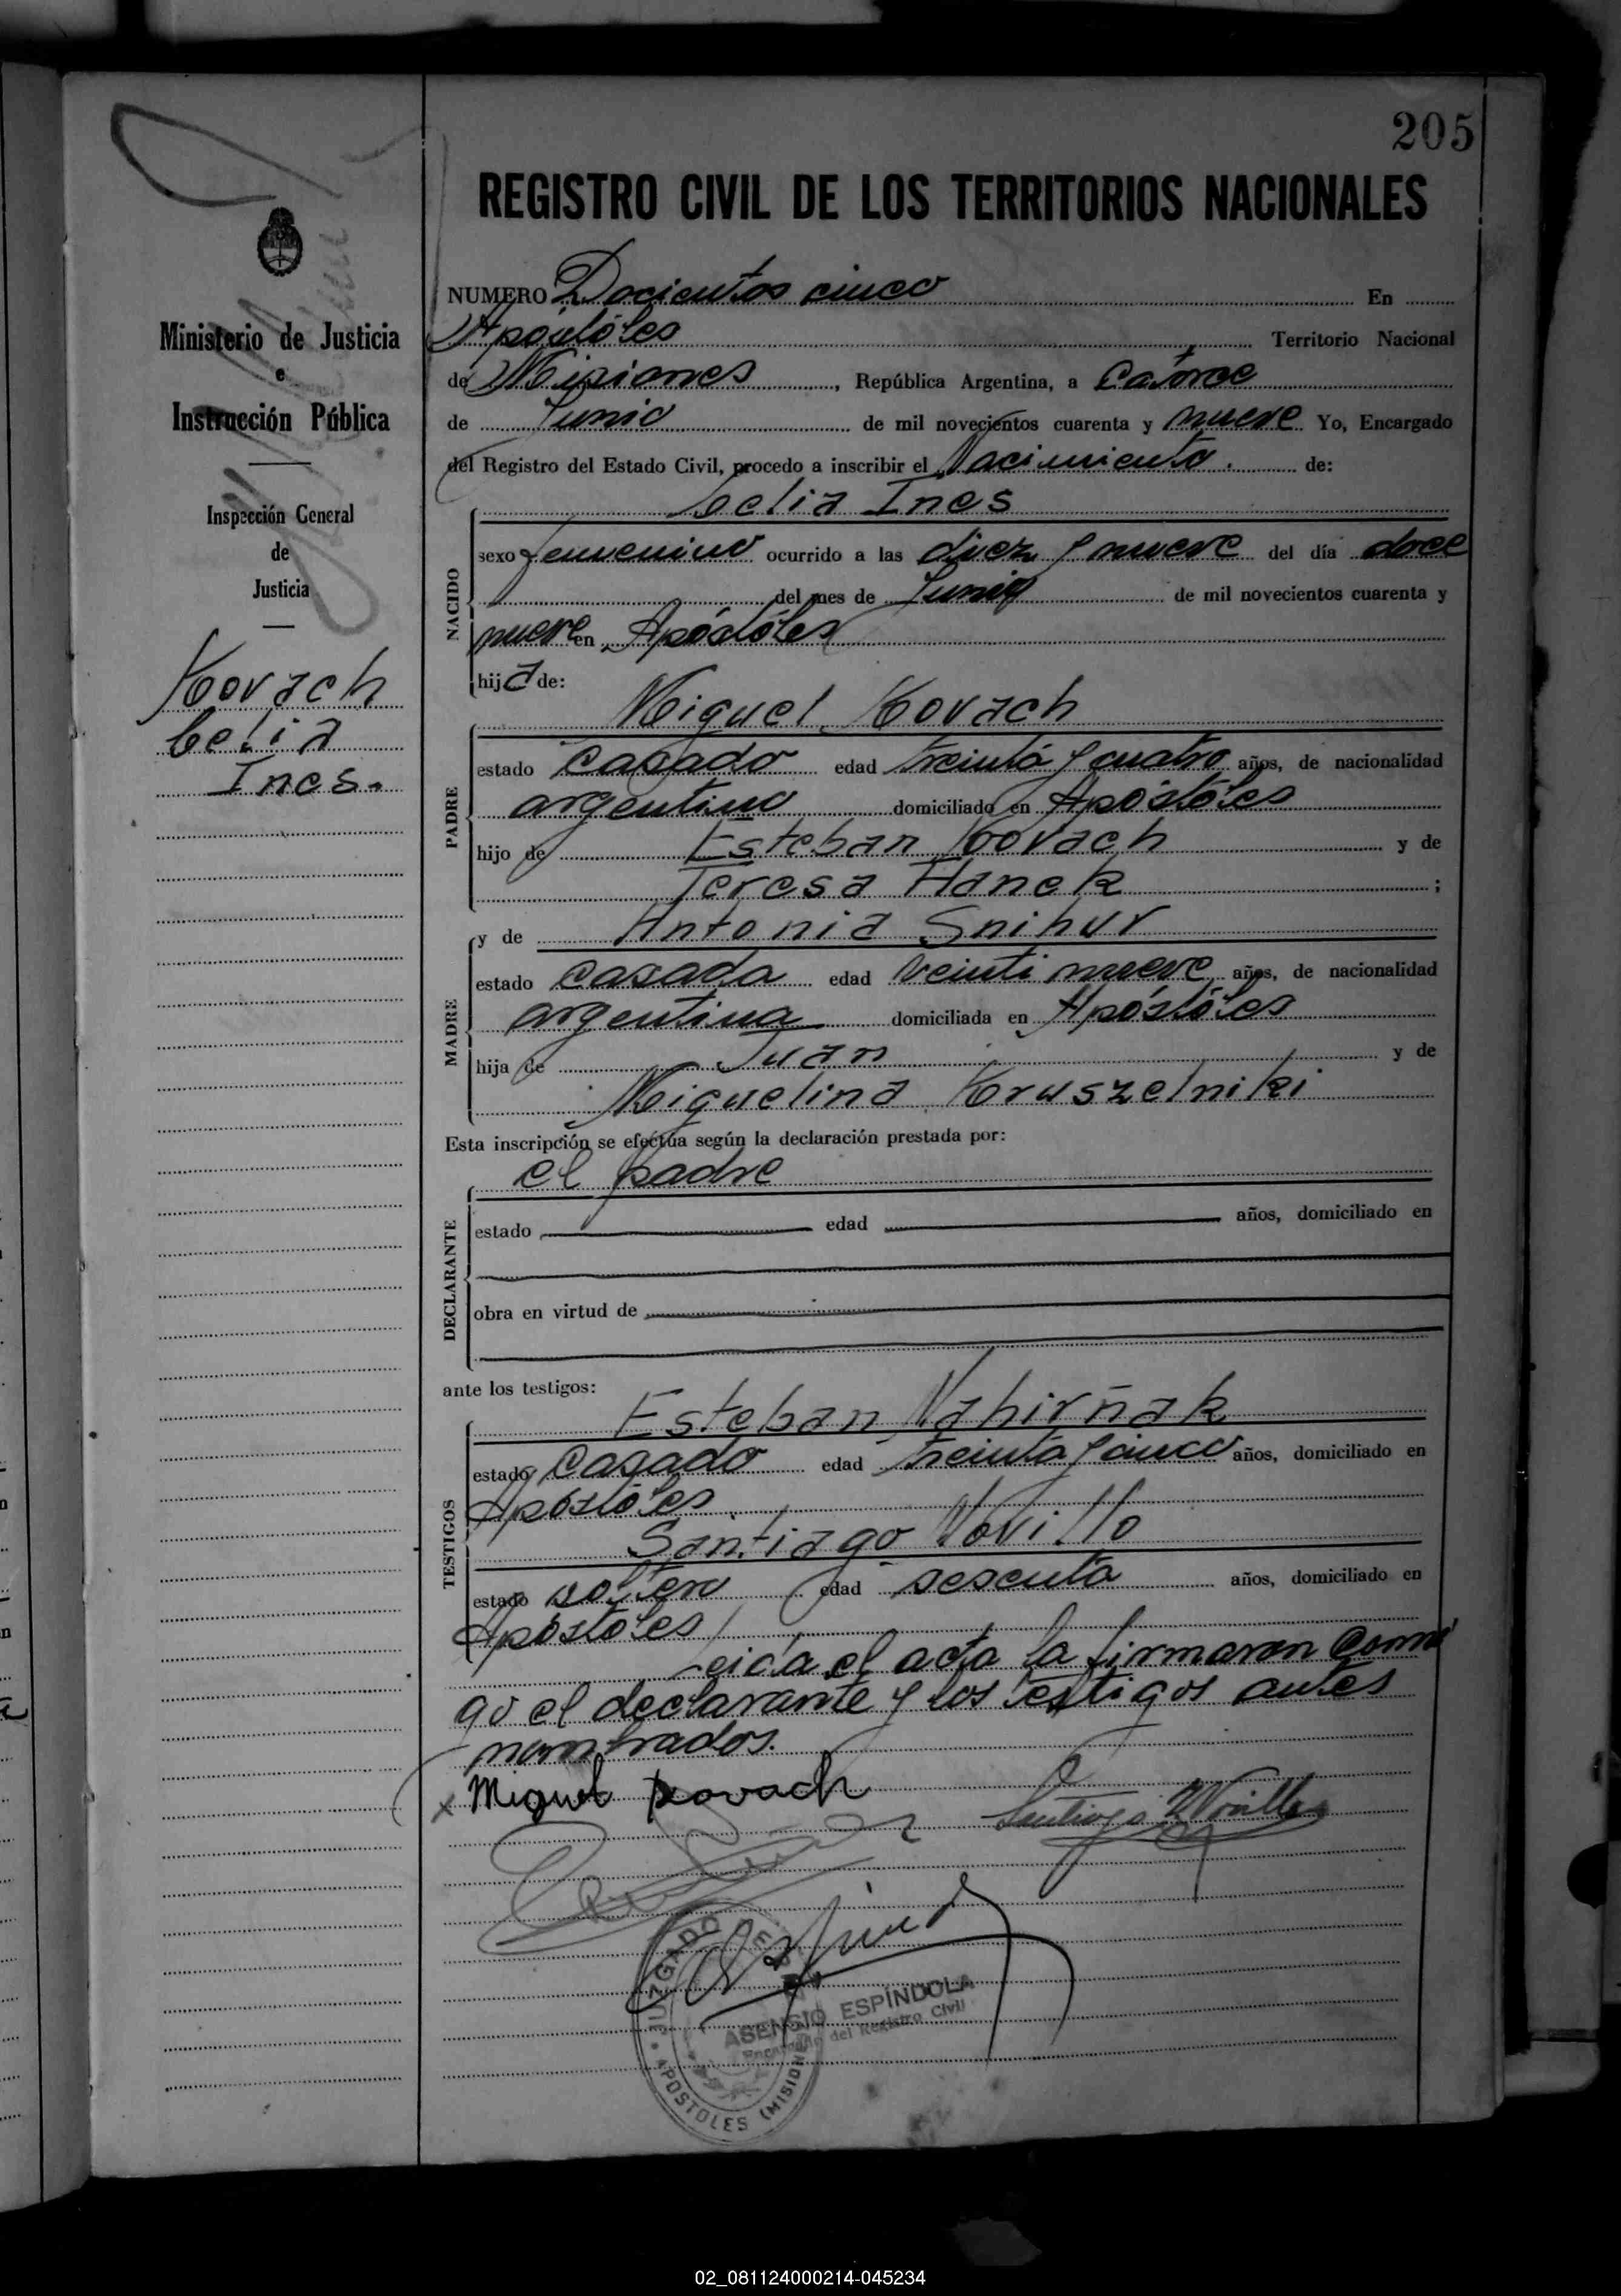 205
REGISTRO CIVIL DE LOS TERRITORIOS NACIONALES
Ministerio de Justicia
e
Instrucción Pública
Inspección General
de
Justicia
Kovach
Celia
Ines.
NUMERO Docientos cinco En
Apóstóles Territorio Nacional
de Misiones, República Argentina, a Catorce
de Junio de mil novecientos cuarenta y nueve Yo, Encargado
del Registro del Estado Civil, procedo a inscribir el Nacimiento. de:
Celia Ines
NACIDO
sexo femenino ocurrido a las diez y nueve del día doce
del mes de Junio de mil novecientos cuarenta y
nueve en Apóstóles
hija de:
Miguel Kovach
PADRE
estado Casado edad treinta y cuatro años, de nacionalidad
argentino domiciliado en Apóstóles
hijo de Esteban Kovach y de
Teresa Hanek ;
y de Antonia Snihur
MADRE
estado Casada edad veinti nueve años, de nacionalidad
argentina domiciliada en Apóstóles
hija de Juan y de
Miguelina Kruszelniki
Esta inscripción se efectúa según la declaración prestada por:
el padre
DECLARANTE
estado edad años, domiciliado en
obra en virtud de
ante los testigos:
Esteban Nahirñak
TESTIGOS
estado Casado edad treinta y cinco años, domiciliado en
Apóstóles
Santiago Novillo
estado soltero edad sesenta años, domiciliado en
Apóstóles
Leida el acta la firmaron conmi
go el declarante y los testigos antes
nombrados.
x Miguel Kovach
Santiago Novillo
JUZGADO DE PAZ
ASENSIO ESPÍNDOLA
Encargado del Registro Civil
APOSTOLES (MISIONES)
02_081124000214-045234